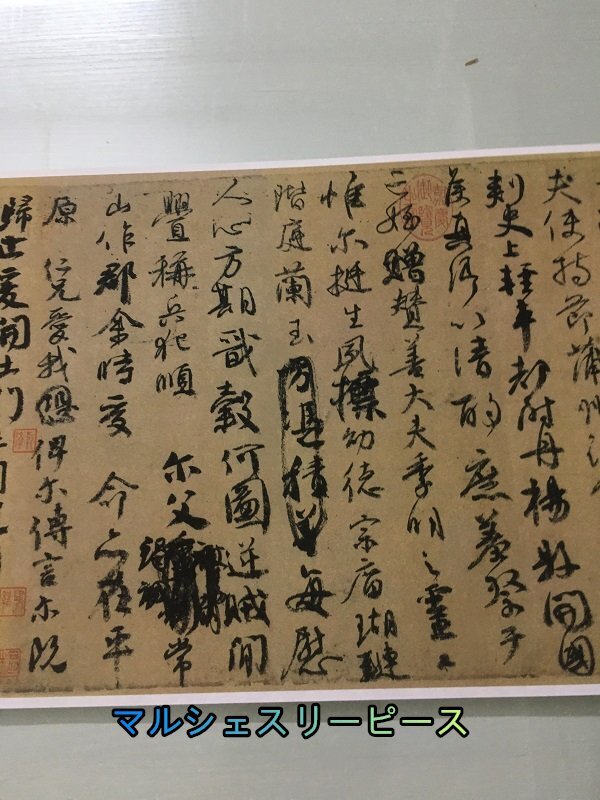 夫使持節蒲州
刺史上輕車都尉丹楊縣開國
侯真卿以清酌庶羞祭于
亡姪贈贊善大夫季明之靈曰
惟尔挺生夙標幼德宗廟瑚璉
階庭蘭玉方憑積善每慰
人心方期戩穀何圖逆賊閒
釁稱兵犯順尔父常
山作郡余時受命亦在平
原仁兄愛我俾尔傳言尔既
歸止爰開土門
マルシェスリーピース